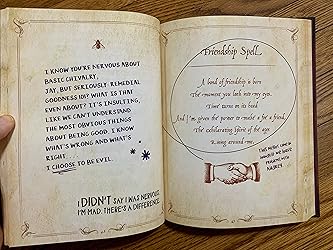 I KNOW YOU'RE NERVOUS ABOUT
BASIC CHIVALRY,
JAY, BUT SERIOUSLY: REMEDIAL
GOODNESS 101? WHAT IS THAT
EVEN ABOUT? IT'S INSULTING,
LIKE WE CAN'T UNDERSTAND
THE MOST OBVIOUS THINGS
ABOUT BEING GOOD. I KNOW
WHAT'S WRONG AND WHAT'S
RIGHT.
I CHOOSE TO BE EVIL.
I DIDN'T SAY I WAS NERVOUS.
I'M MAD. THERE'S A DIFFERENCE.
Friendship Spell
A bond of friendship is born
The moment you lock into my eyes.
Time turns on its head
And I'm given the power to make a foe a friend,
The exhilarating Spirit of the age
Rising around me.
THIS MIGHT COME IN
HANDY IF WE MAKE
FRIENDS WITH